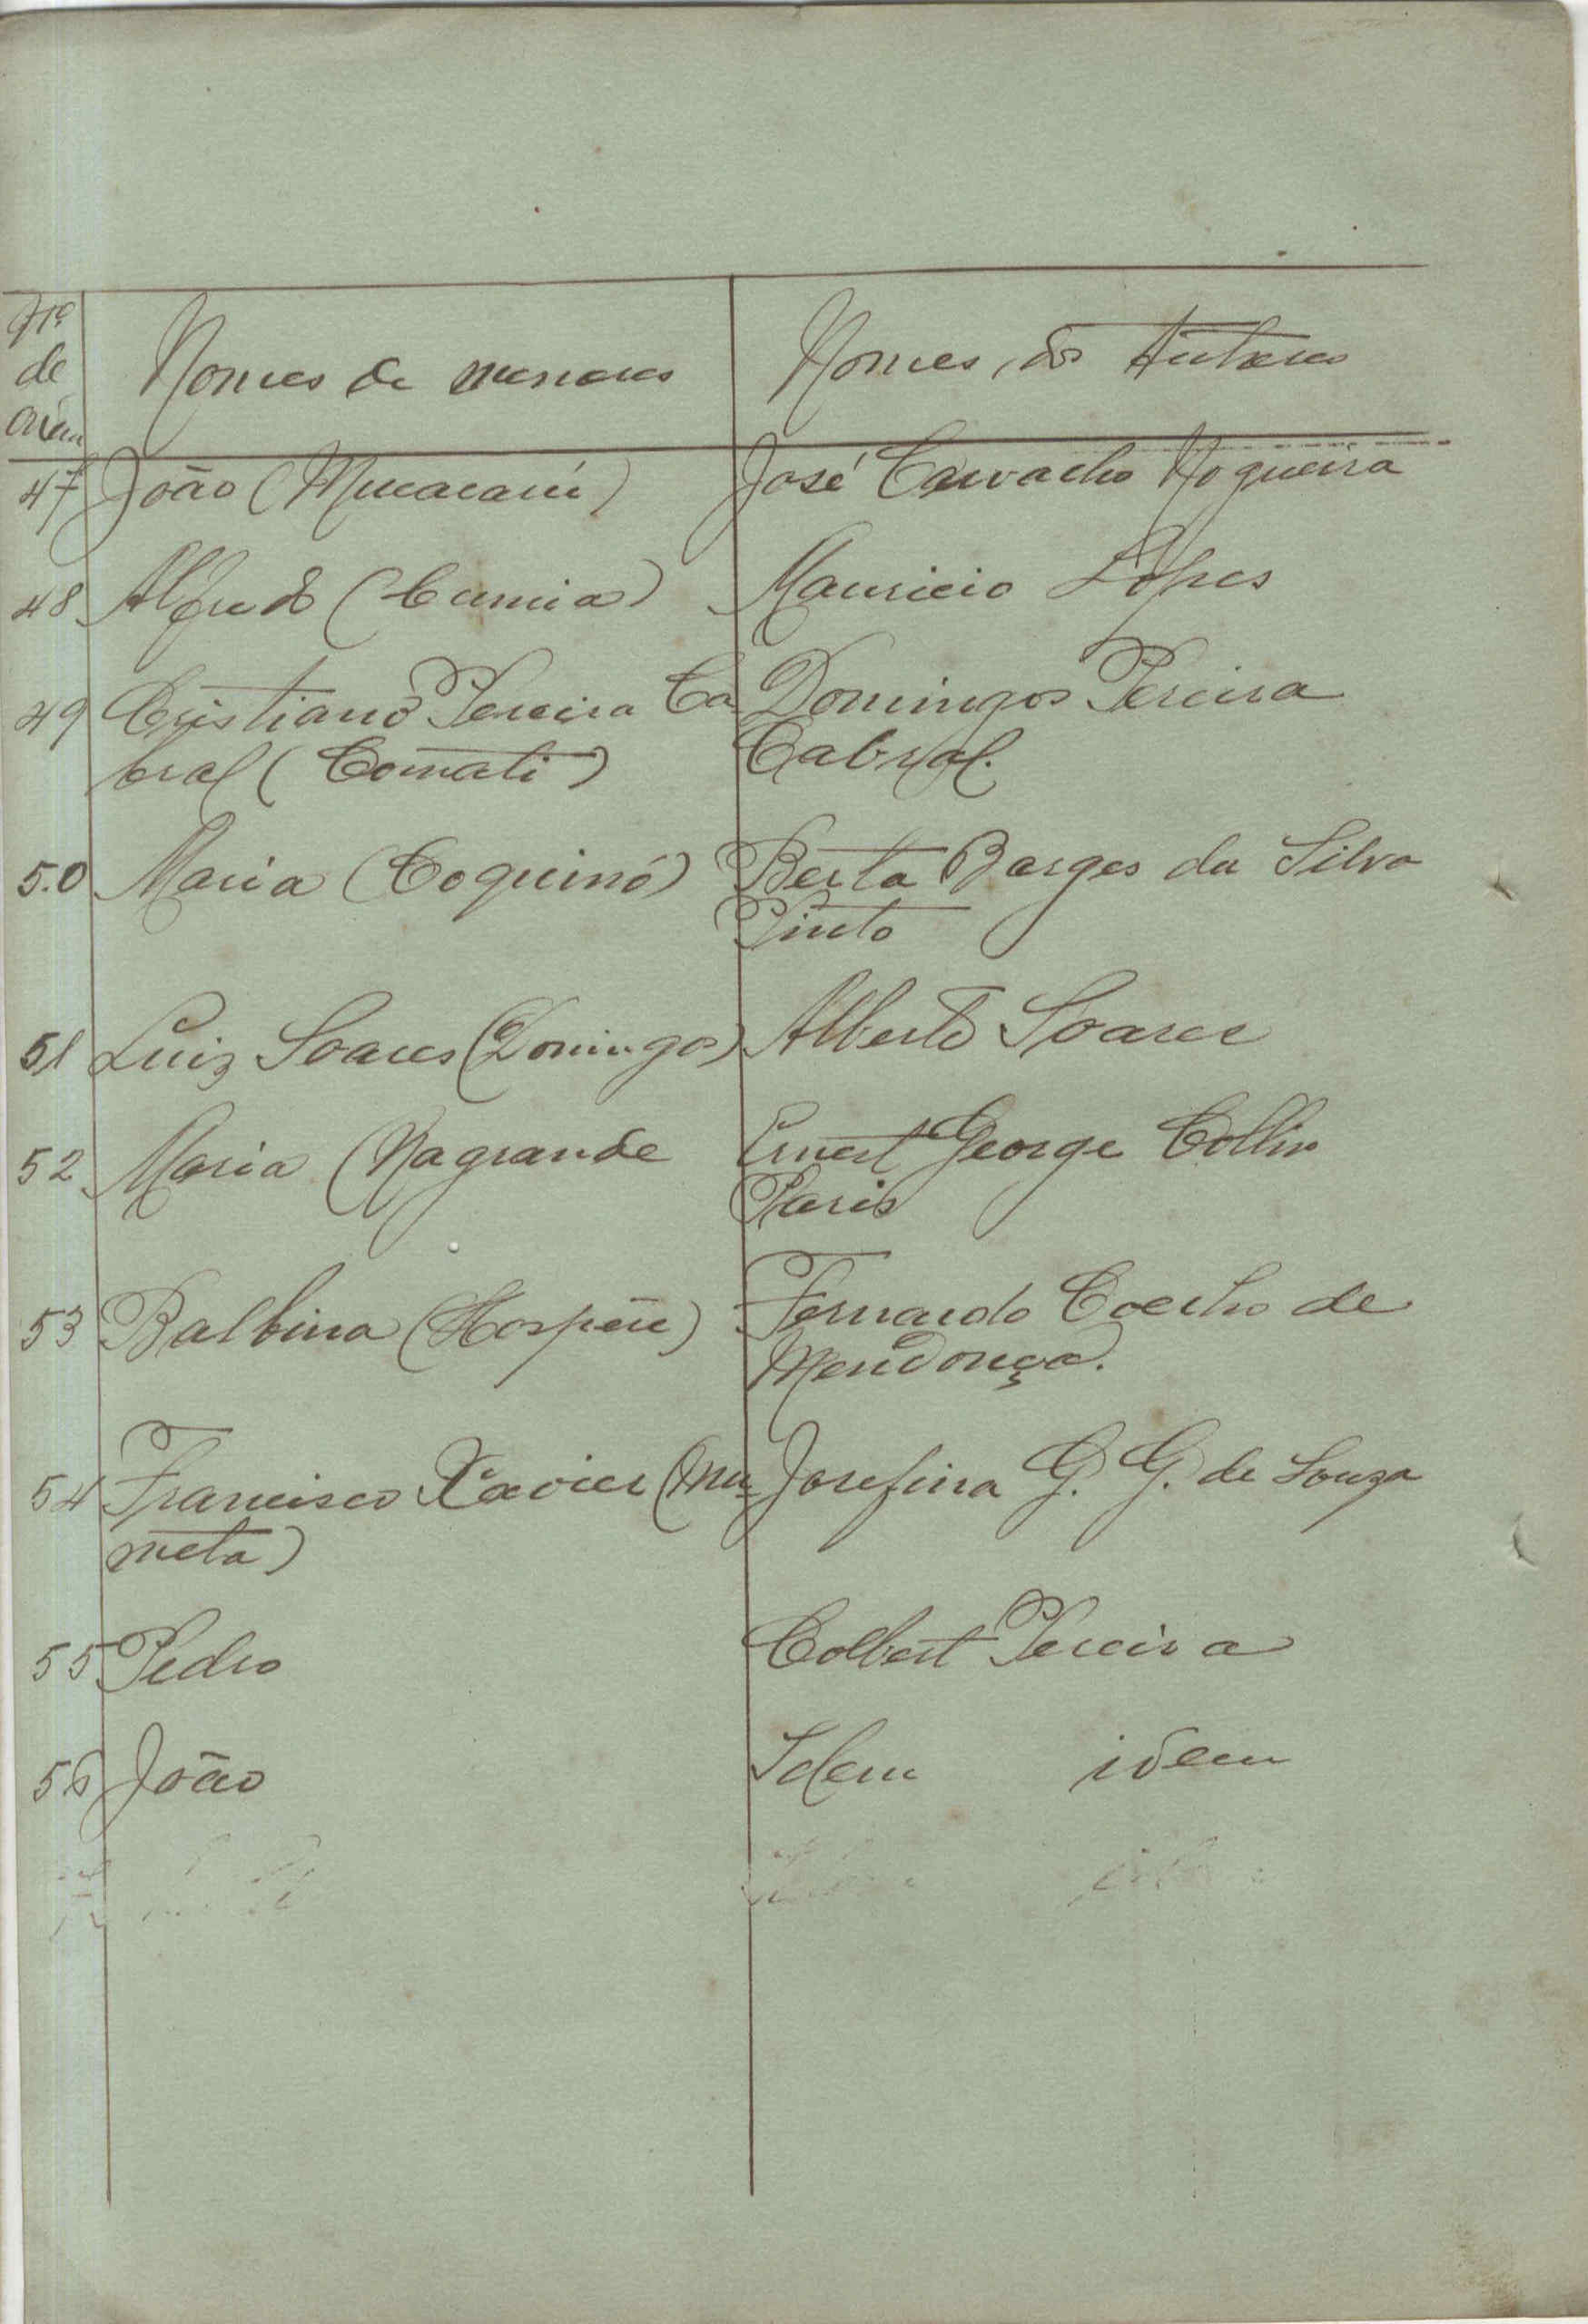 Nº
de
Nomes de menores Nomes dos Tutores
47 João (Mucacarú) José Carvalho Nogueira
48 Alfredo (Cumia) Mauricio Lopes
49 Cristiano Pereira Ca Domingos Pereira
bral (Comati) Cabral.
50 Maria (Coquinó) Berta Borges da Silva
Pinto
51 Luiz Soares (Domingos) Alberto Soares
52 Maria (Nagrande Ernest George Collin
Paris
53 Balbina Fernando Coelho de
Mendonça.
54 Francisco Xavier (Mu= Josefina G. G. de Souza
meta)
55 Pedro Colbert Pereira
56 João Idem idem